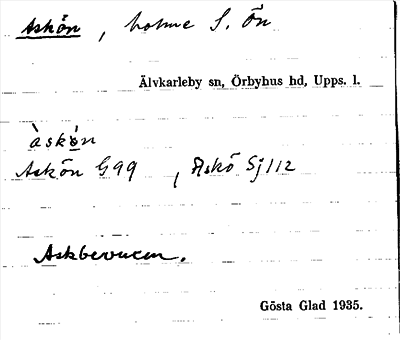 Askön, holme S. Ön
Älvkarleby sn, Örbyhus hd, Upps. l.
àskön
Askön G99, Askö Sj112
Askbevuxen.
Gösta Glad 1935.